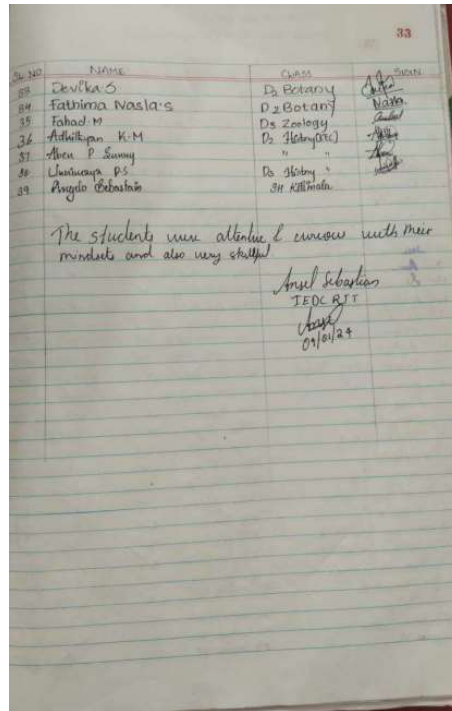 33
SL NO NAME CLASS SIGN
33 Devika. S D3 Botany
34 Fathima Nasla. S D2 Botany Nasla
35 Fahad. M D3 Zoology
36 K. M D2 History
37 Aben P Sunny " "
38 P.S D3 History "
39 Angelo Sebastain
The students were attentive & curious with their
mindsets and also very skillful
Ansel Sebastian
IEDC RIT
09/01/24